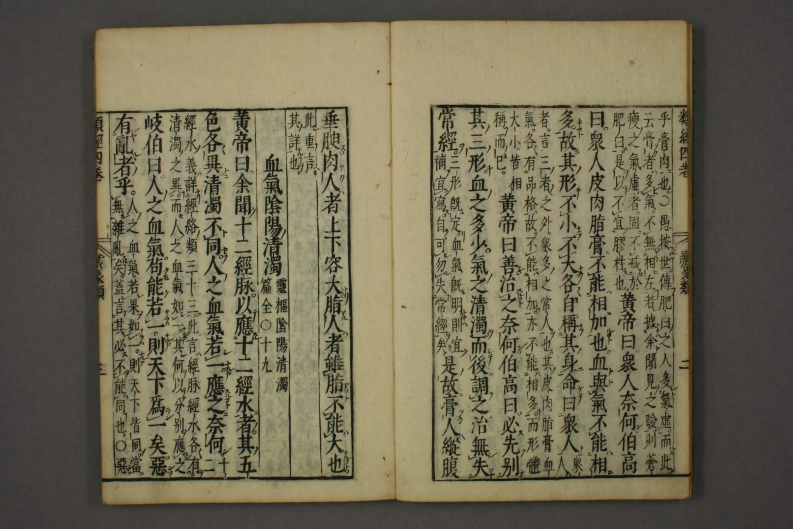 類經四卷 藏象類 二
乎膏肉也○愚按世傳肥曰之人多氣虛而此
云膏者多氣不無相左若據余聞見之驗則蒼
瘦之氣虛者固不減於
肥白是以不宜膠柱也 黃帝曰衆人奈何伯高
曰衆人皮肉脂膏不能相加也血與氣不能相
多故其形不小不大各自稱其身命曰衆人 衆人
者言三者之外衆多之常人也其皮肉脂膏血
氣各有品格故不能相加亦不能相多而形體
大小皆相
稱而已 黃帝曰善治之奈何伯高曰必先別
其三形血之多少氣之清濁而後調之治無失
常經 三形既定血氣既明則宜
補宜寫自可勿失常經矣 是故膏人縱腹
垂腴肉人者上下容大脂人者雖脂不能大也
此重言
其詳也
血氣陰陽清濁 靈樞陰陽清濁
篇全○十九
黃帝曰余聞十二經脉以應十二經水者其五
色各異清濁不同人之血氣若一應之奈何 十二
經水義詳經絡類三十三此言經脉經水各有
清濁之異而人之血氣如一其何以分別應之
岐伯曰人之血氣苟能若一則天下爲一矣惡
有亂者乎 人之血氣若果如一則天下皆同當
無雜亂矣蓋言其必不能同也○惡
類經四卷 藏象類 三